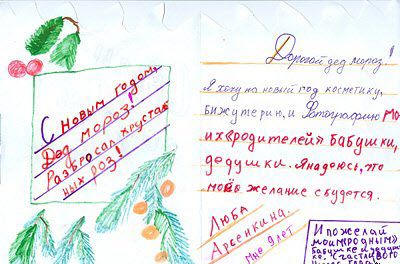 С Новым годом,
Дед мороз!
Разбросал хрустал
ных роз!
Дорогой дед мороз!
Я хочу на новый год косметику,
бижутерию, и Фотографию мо
их родителей и бабушки,
дедушки. Я надеюсь, что
моё желание сбудется.
Люба
Арсенкина.
мне 9 лет
И пожелай
моим "родным"
бабушке и дедуш
ке счастливого